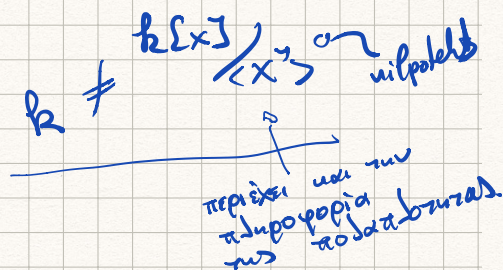 k ≠ k[x]/<x²> nilpotent
0
περιέχει και την
πληροφορία
της πολλαπλότητας